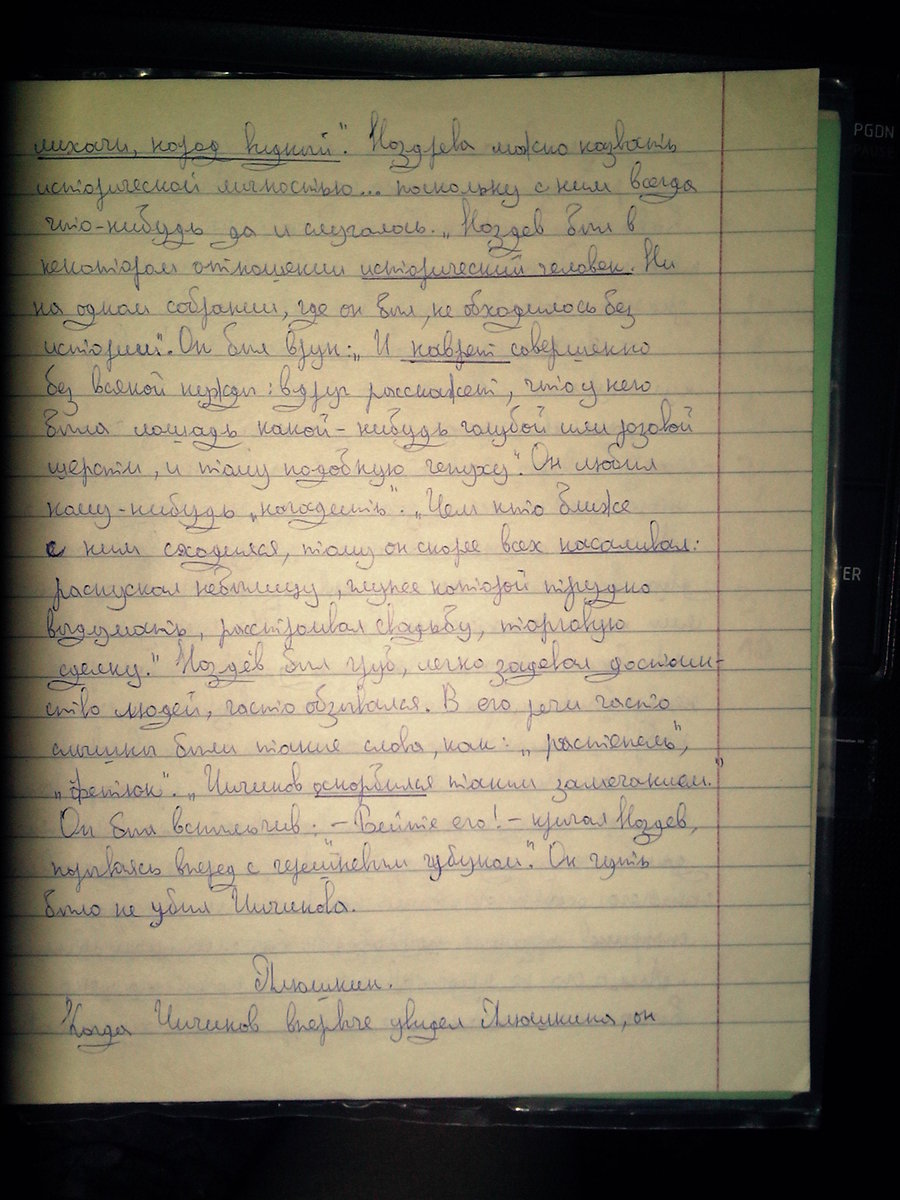 лихачи, народ видный". Ноздрева можно назвать
исторической личностью... поскольку с ним всегда
что-нибудь да и случалось. „Ноздев был в
некотором отношении исторический человек. Ни
на одном собрании, где он был, не обходилось без
истории". Он был врун: „И наврет совершенно
без всякой нужды: вдруг расскажет, что у него
была лошадь какой-нибудь голубой или розовой
шерсти, и тому подобную чепуху". Он любил
кому-нибудь „нагадить". „Чем кто ближе
с ним сходился, тому он скорее всех насаливал:
распускал небылицу, глупее которой трудно
выдумать, расстроивал свадьбу, торговую
сделку." Ноздёв был груб, легко задевал достоин-
ство людей, часто обзывался. В его речи часто
слышны были такие слова, как: „растепель",
„фетюк". „Чичиков оскорбился таким замечанием."
Он был вспыльчив: – Бейте его! – кричал Ноздев,
порываясь вперед с черешневым чубуком". Он чуть
было не убил Чичикова.
Плюшкин.
Когда Чичиков впервые увидел Плюшкина, он
PGDN
PAUSE
TER